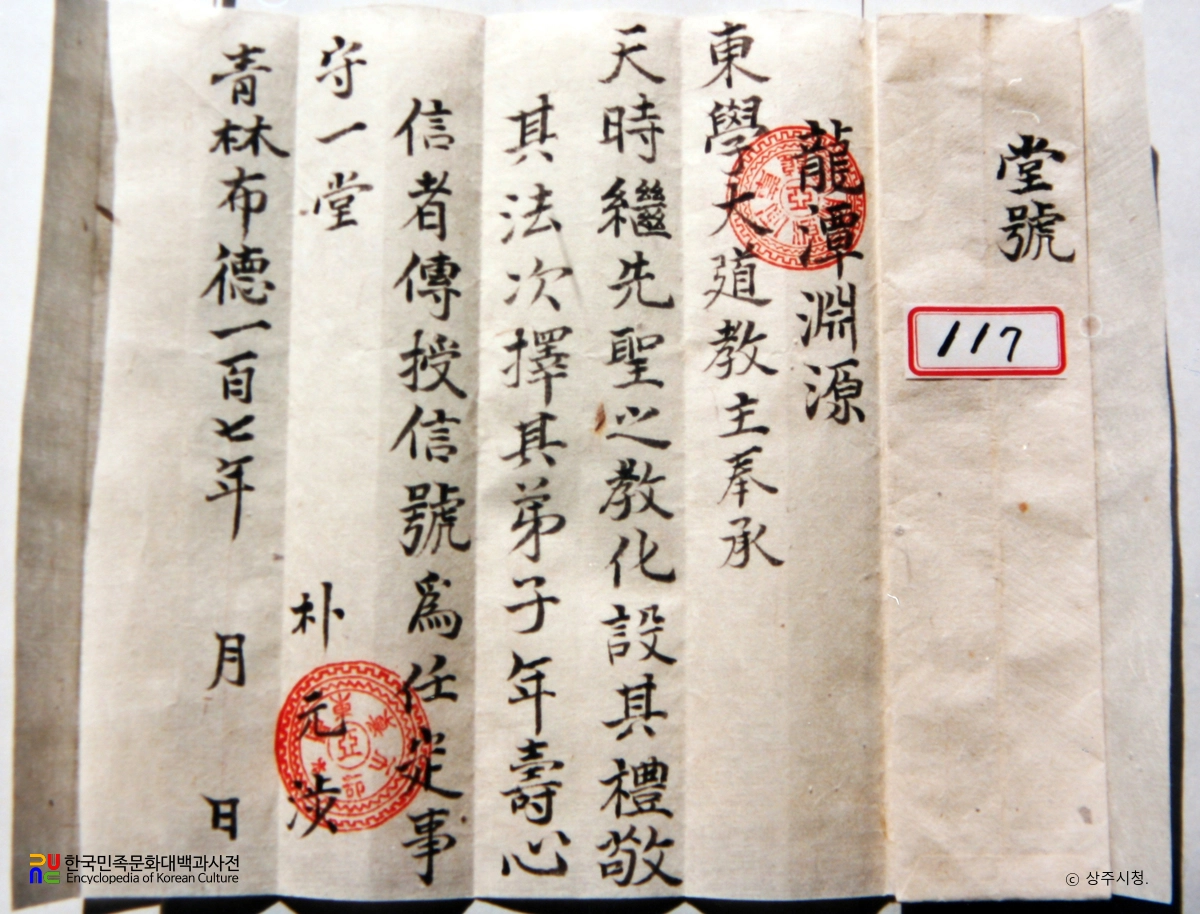 堂號
117
龍潭淵源
東學大道教主奉承
天時繼先聖之教化設其禮敬
其法次擇其弟子年壽心
信者傳授信號爲任定事
守一堂
朴元涉
青林布德一百七年 月 日
한국민족문화대백과사전
Encyclopedia of Korean Culture
ⓒ 상주시청.